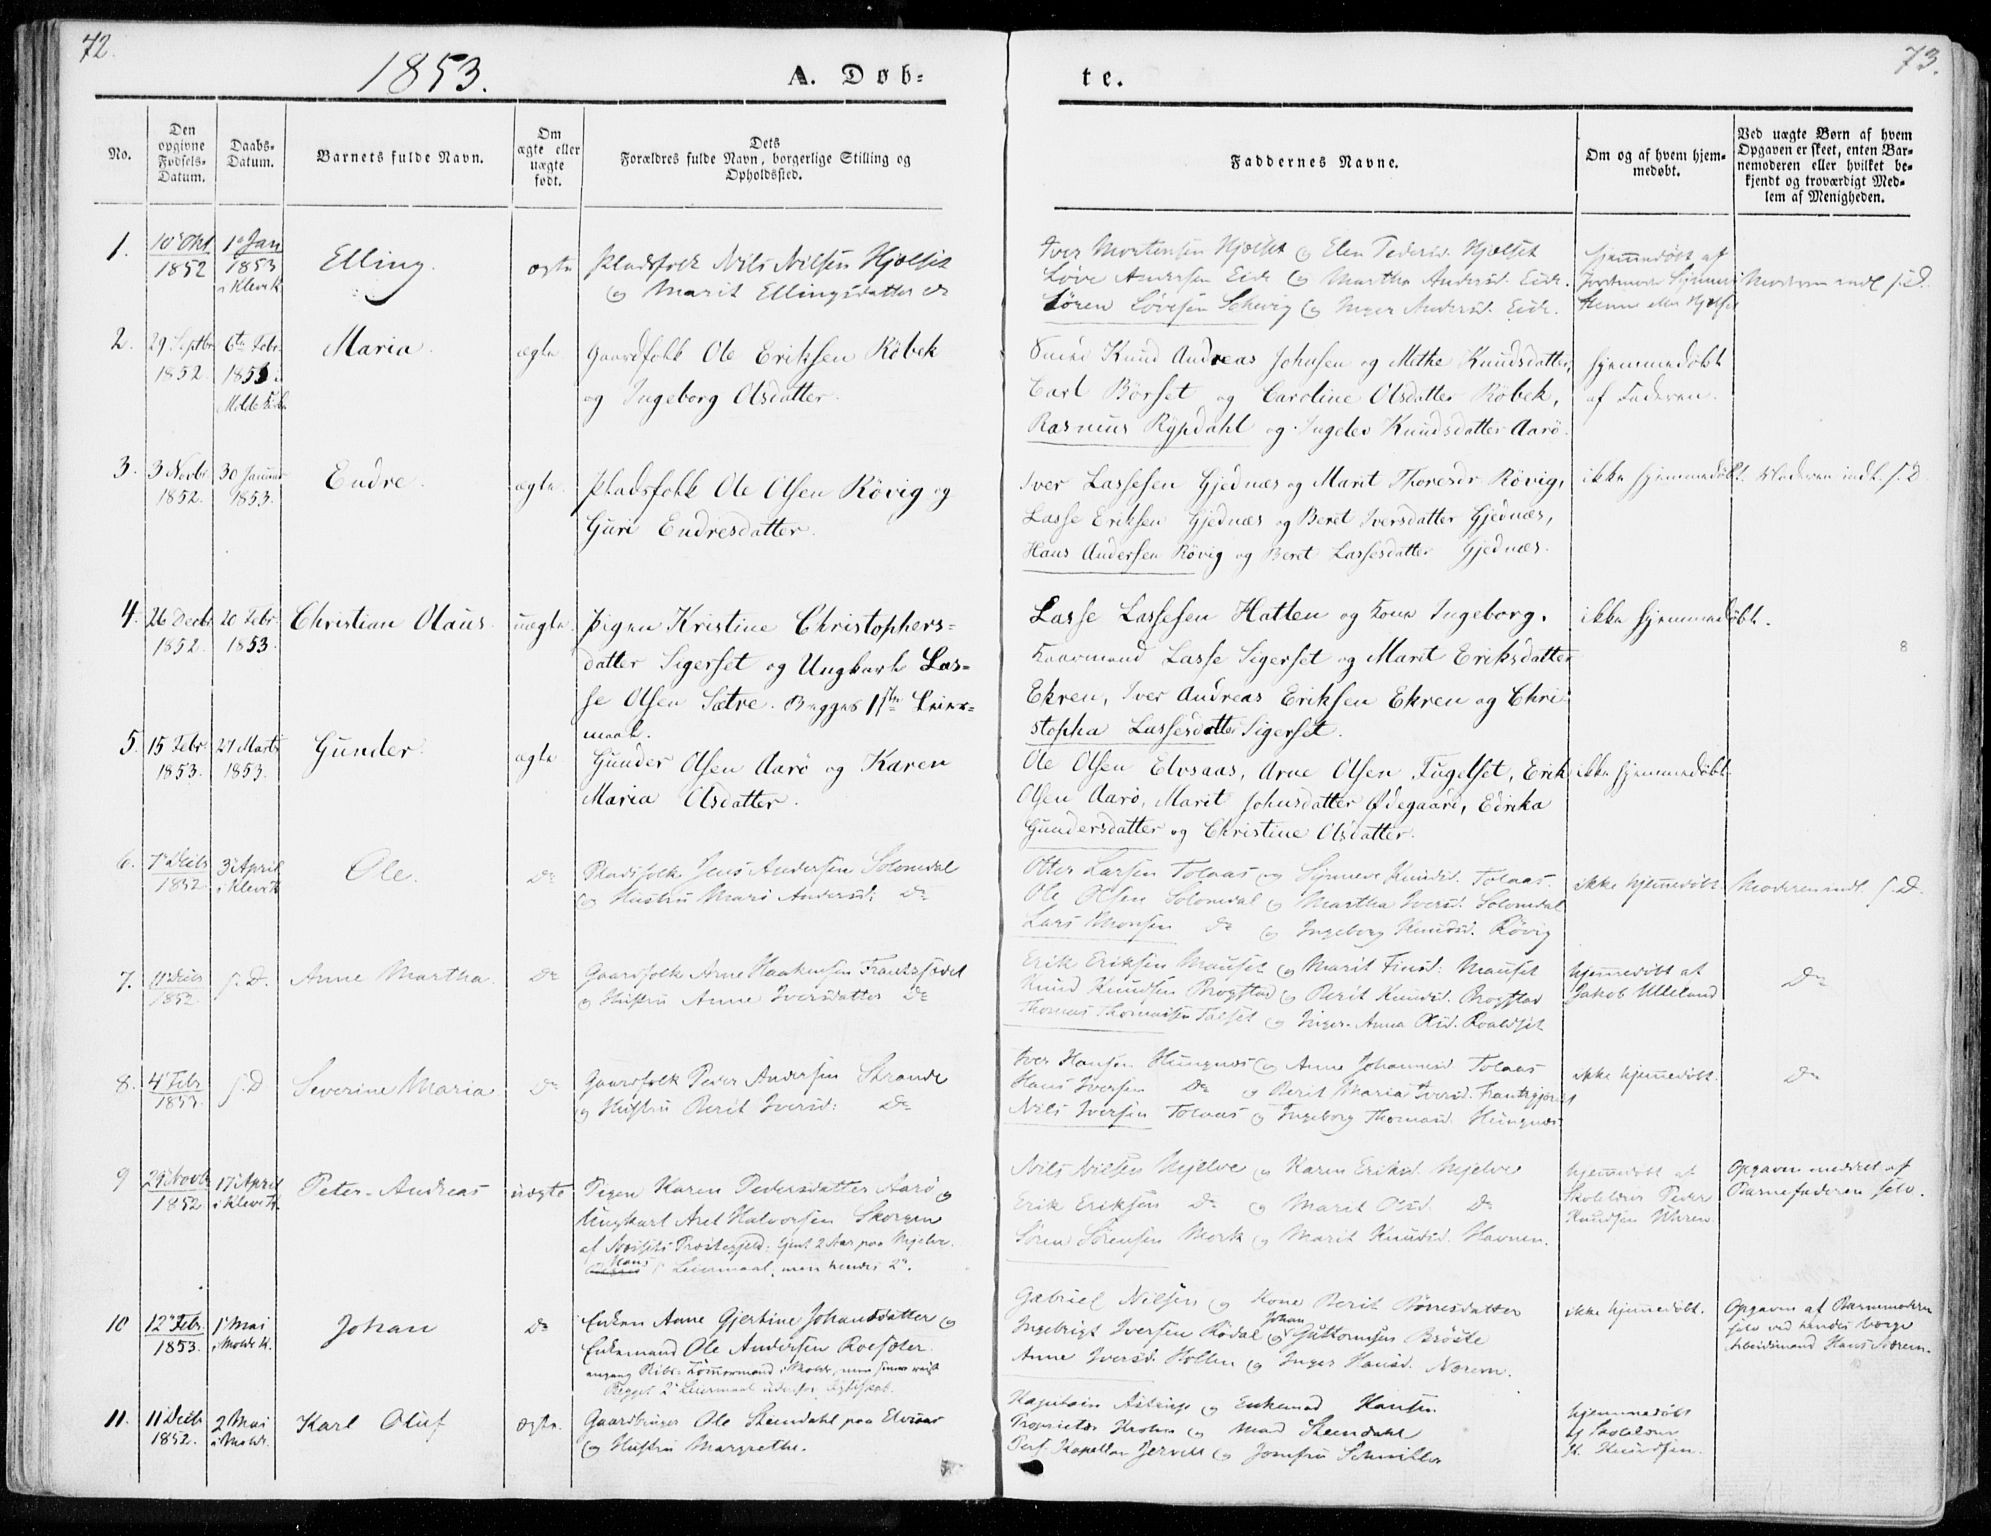 72.
73.
1853.
A. Døb-
te.
No.
Den opgivne Fødsels-Datum.
Daabs-Datum.
Barnets fulde Navn.
Om ægte eller uægte født.
Dets Forældres fulde Navn, borgerlige Stilling og Opholdssted.
Faddernes Navne.
Om og af hvem hjemmedøbt.
Ved uægte Børn af hvem Opgaven er skeet, enten Barnemoderen eller hvilket bekjendt og troværdigt Medlem af Menigheden.
1.
10 Okt 1852
1 Jan 1853 i Klevik
Elling.
ægte
Pladsfolk Nils Nilsen Hjelset
og Marit Ellingsdatter do
Iver Mortensen Hjelset og Elen Pedersd. Hjelset
Løve Andersen Eide og Martha Andersd. Eide.
Søren Lovesen og Inger Andersd. Eide.
hjemmedøbt af
Hjelset
Moderen indl. s. D.
2.
29 Septbr 1852.
6te Febr. 1853 i Molde
Maria.
ægte.
Gaardfolk Ole Eriksen Røbek
og Ingeborg Olsdatter.
Smed Knud Andreas Johnsen og Methe Knudsdatter,
Carl Börset og Caroline Olsdatter Röbek,
Rasmus Rypdahl og Ingeb. Knudsdatter Aarö.
hjemmedöbt
af Faderen.
3.
3 Novbr 1852.
30 Januar 1853.
Endre.
ægte.
Pladsfolk Ole Olsen Rövig og
Guri Endresdatter.
Iver Lassesen Gjednæs og Marit Thoresdr Rövig,
Lasse Eriksen Gjednæs og Beret Iversdatter Gjednæs,
Hans Andersen Rövig og Beret Lassesdatter Gjednæs.
ikke hjemmedöbt.
Moderen indl. s. D
4.
26 Decbr 1852.
20 Febr. 1853.
Christian Olaus.
uægte.
Pigen Kristine Christophers-
datter Sigerset og Ungkarl Las-
se Olsen Sætre. Begges 1ste Leier-
maal.
Lasse Lassesen Hatten og Kone Ingeborg.
Kaarmand Lasse Sigerset og Marit Eriksdatter
Ekren, Iver Andreas Eriksen Ekren og Chri-
stopha Lassesdatter Sigerset.
ikke hjemmedöbt.
8
5.
15 Febr 1853.
27 Marts 1853.
Gunder
ægte
Gunder Olsen Aarö og Karen
Maria Olsdatter.
Ole Olsen Elvsaas, Arne Olsen Fugelset, Erik
Olsen Aarö, Marit Johnsdatter Ødegaard, Edrika
Gundersdatter og Christine Olsdatter.
ikke hjemmedöbt.
6.
1852
3 April i Klevik
Ole.
Do
Pladsfolk Jens Andersen Solemdal
og Hustru Mari Andersd. Do
Otter Larsen Tolaas og Synneve Knudsd. Tolaas.
Ole Olsen Solemdal og Martha Iversd. Solemdal
Lars Monsen Do og Ingeborg Knudsd. Rövig
ikke hjemmedöbt.
Moderen indl. s. D.
7.
11 Decbr 1852.
s. D.
Anne Martha.
Do
Gaardfolk Arne Haakensen
og Hustru Anne Iversdatter Do
Erik Eriksen Mauset og Marit Finsd. Mauset
Knud Knudsen Brogstad og Berit Knudsd. Brogstad
Thomas Thomassen og Inger-Anna Olsd. Roaldset
hjemmedöbt af
Jakob Ulleland
Do
8.
4 Febr 1853.
s. D
Severine Maria
Do
Gaardfolk Peder Andersen Strande
og Hustru Berit Iversd. Do
Iver Hansen Hungnes og Anne Johannesd. Tolaas
Hans Iversen Do og Berit Maria Iversd.
Nils Iversen Tolaas og Ingeborg Thomasd. Hungnes
ikke hjemmedöbt.
Do
9
29 Novbr 1852
17 April i Klevik.
Peter-Andreas
uægte
Pigen Karen Pedersdatter Aarö og
Ungkarl Axel Halvorsen Skorgen
af Præstegjeld. tjent 2 Aar paa Mjelve.
Hans 1 Leiermaal, men hendes 2.
Nils Nilsen Mjelve og Karen Eriksd. Mjelve
Erik Eriksen Do og Marit Olsd. Do
Søren Sørensen Mork og Marit Knudsd. Havnen.
hjemmedøbt af
Skolelærer Peder
Knudsen
Opgaven meddelt af
Barnefaderen selv.
10
12 Febr. 1853.
1 Mai i Molde K.
Johan
Do
Enken Anne Gjertine Johansdatter og
Enkemand Ole Andersen
Begges 2 Leiermaal udenfor Ægteskab.
Gabriel Nilsen og Kone Berit
Ingebrigt Iversen Rødal og Johan Guttormsen
Anne Iversd. Hollen og Inger Hansd. Norem.
ikke hjemmedöbt.
Opgaven af Barnemoderen
selv ved hendes
Arbeidsmand Hans Norem.
11.
11 Decbr 1852.
2 Mai i Molde.
Karl Oluf
ægte.
Gaardbruger Ole Stendahl paa Elvsaas
og Hustru Margrethe.
og Enkemad Hansen
Proprietær og Mad Stendahl
Pers. Kapellan Jervell og Jomfru
hjemmedöbt
af
Knudsen.